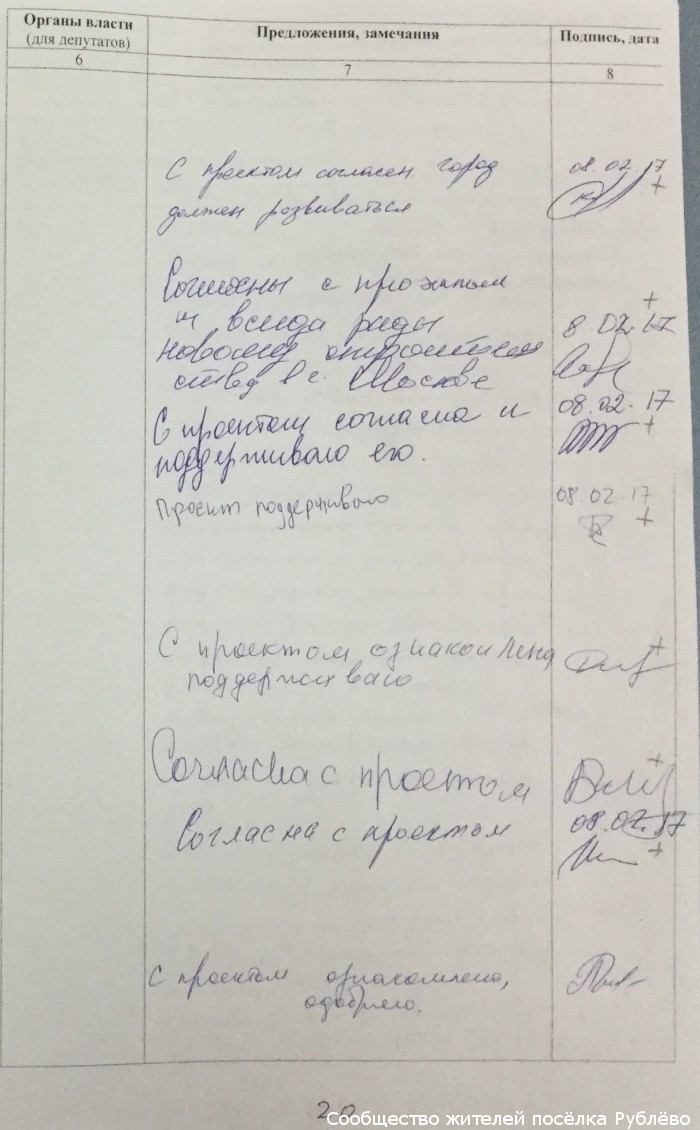 Органы власти
(для депутатов)
Предложения, замечания
Подпись, дата
6
7
8
С проектом согласен город
должен развиваться
08.02.17
+
Согласны с проэктом
и всегда рады
новому
в г. Москве
+
8.02.17
С проектом согласна и
поддерживаю его.
08.02.17
+
Проект поддерживаю
08.02.17
+
С проектом ознакомлена
поддерживаю
+
Согласна с проектом
+
Согласна с проектом
08.02.17
+
С проектом ознакомлена,
одобряю.
20
Сообщество жителей посёлка Рублёво